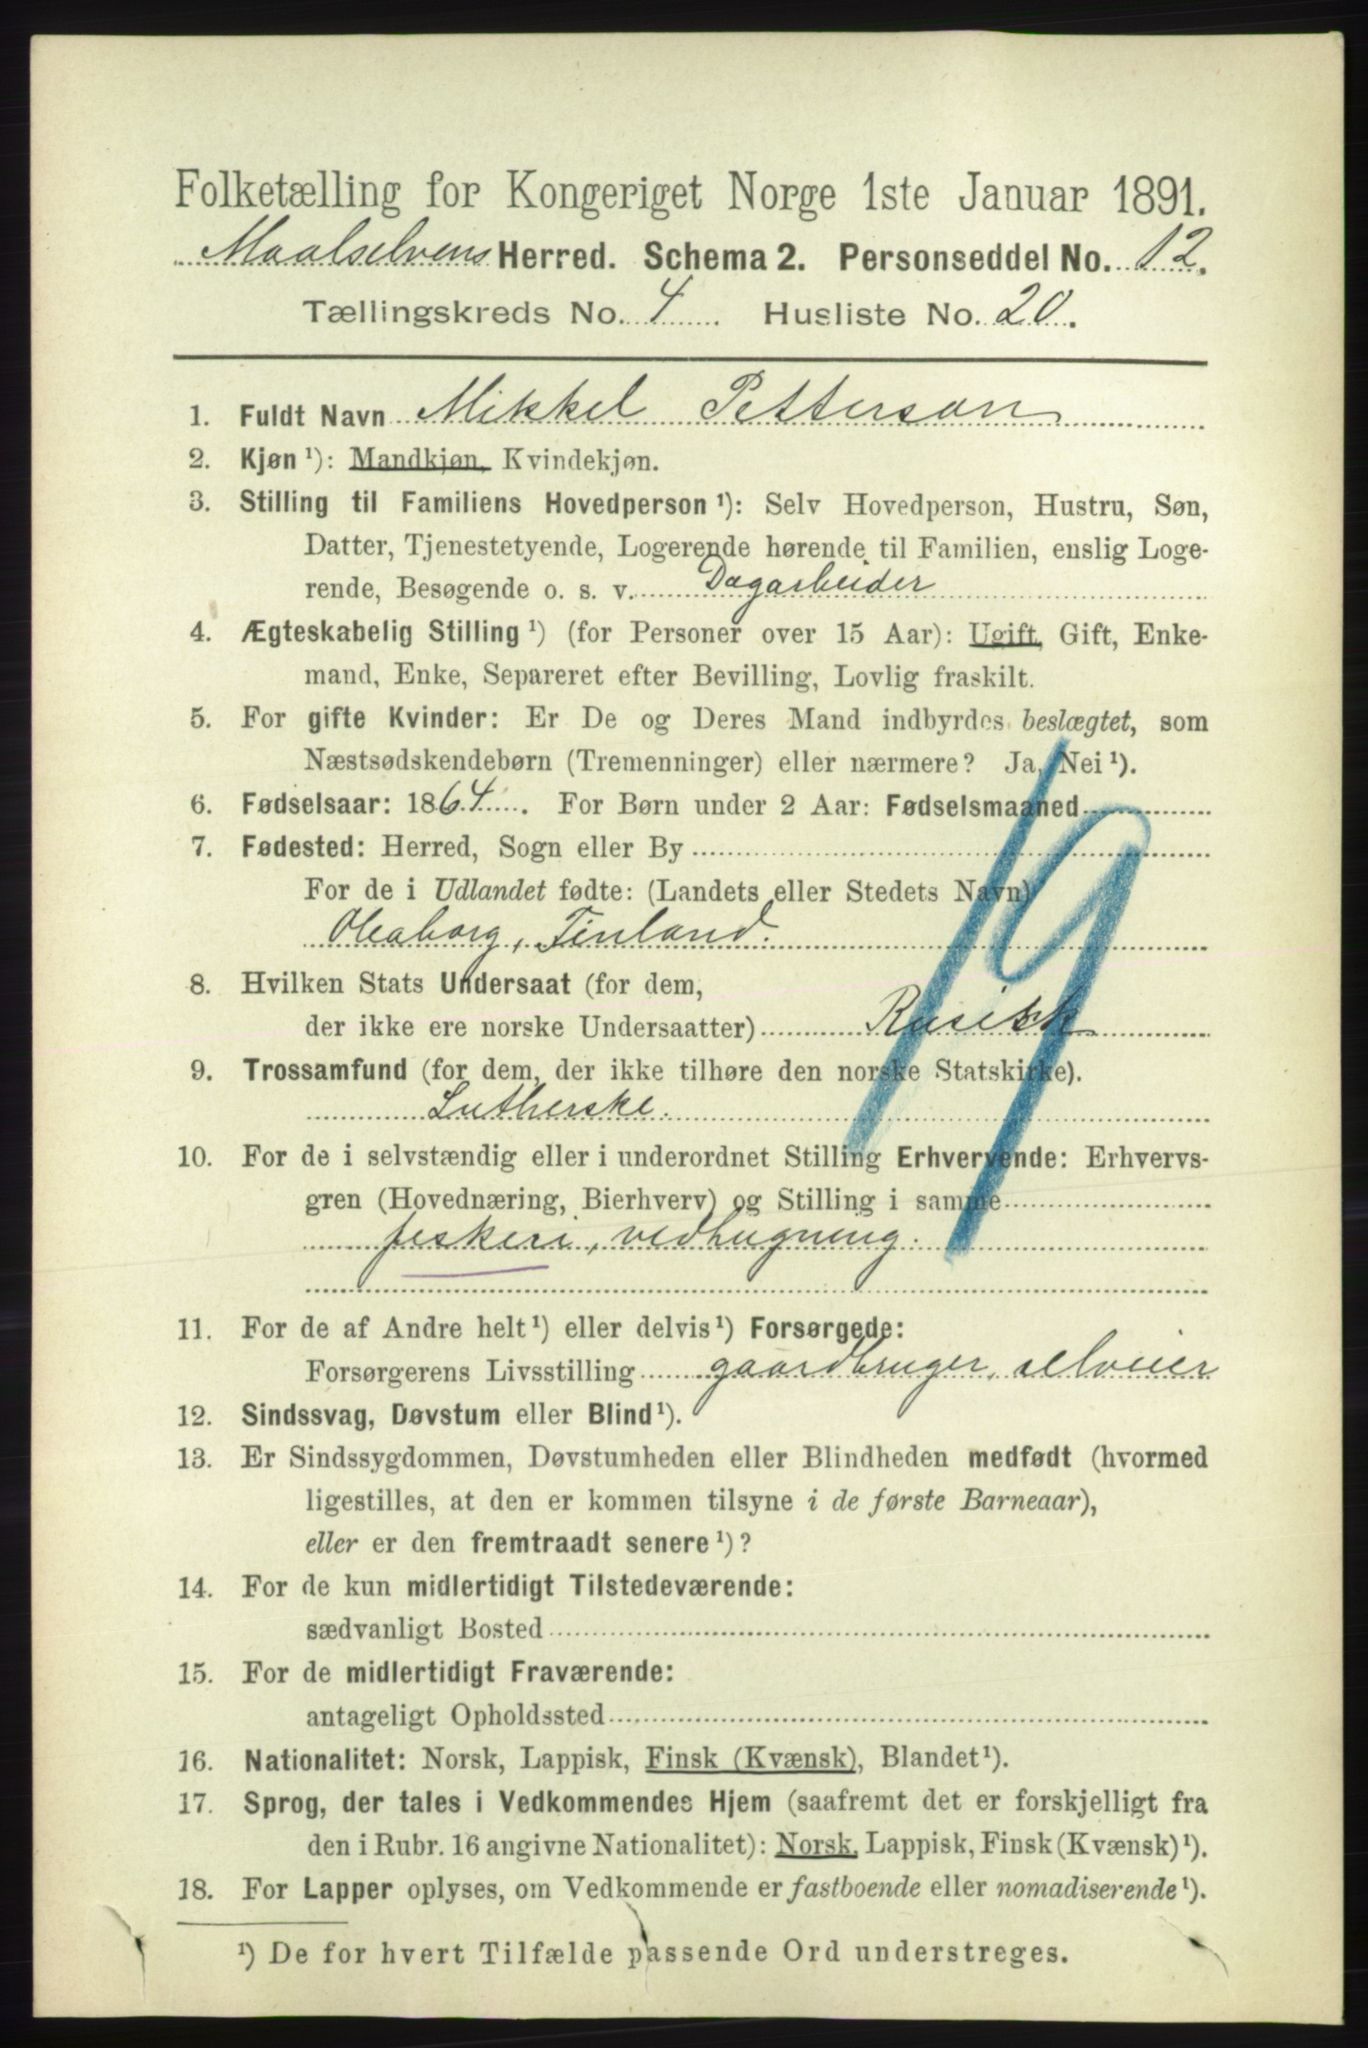 Folketælling for Kongeriget Norge 1ste Januar 1891.
Maalselvens Herred. Schema 2. Personseddel No. 12.
Tællingskreds No. 4 Husliste No. 20.
1. Fuldt Navn Mikkel Petterson
2. Kjøn ¹): Mandkjøn, Kvindekjøn.
3. Stilling til Familiens Hovedperson ¹): Selv Hovedperson, Hustru, Søn,
Datter, Tjenestetyende, Logerende hørende til Familien, enslig Loge-
rende, Besøgende o. s. v. Dagarbeider
4. Ægteskabelig Stilling ¹) (for Personer over 15 Aar): Ugift, Gift, Enke-
mand, Enke, Separeret efter Bevilling, Lovlig fraskilt.
5. For gifte Kvinder: Er De og Deres Mand indbyrdes beslægtet, som
Næstsødskendebørn (Tremenninger) eller nærmere? Ja, Nei ¹).
6. Fødselsaar: 1864. For Børn under 2 Aar: Fødselsmaaned
7. Fødested: Herred, Sogn eller By
For de i Udlandet fødte: (Landets eller Stedets Navn)
Oleaborg, Finland.
8. Hvilken Stats Undersaat (for dem,
der ikke ere norske Undersaatter) Rusisk
9. Trossamfund (for dem, der ikke tilhøre den norske Statskirke).
Lutherske.
10. For de i selvstændig eller i underordnet Stilling Erhvervende: Erhvervs-
gren (Hovednæring, Bierhverv) og Stilling i samme
feskeri, vedhugning.
11. For de af Andre helt ¹) eller delvis ¹) Forsørgede:
Forsørgerens Livsstilling gaardbruger, selveier
12. Sindssvag, Døvstum eller Blind ¹).
13. Er Sindssygdommen, Døvstumheden eller Blindheden medfødt (hvormed
ligestilles, at den er kommen tilsyne i de første Barneaar),
eller er den fremtraadt senere ¹)?
14. For de kun midlertidigt Tilstedeværende:
sædvanligt Bosted
15. For de midlertidigt Fraværende:
antageligt Opholdssted
16. Nationalitet: Norsk, Lappisk, Finsk (Kvænsk), Blandet ¹).
17. Sprog, der tales i Vedkommendes Hjem (saafremt det er forskjelligt fra
den i Rubr. 16 angivne Nationalitet): Norsk, Lappisk, Finsk (Kvænsk) ¹).
18. For Lapper oplyses, om Vedkommende er fastboende eller nomadiserende ¹).
¹) De for hvert Tilfælde passende Ord understreges.
19